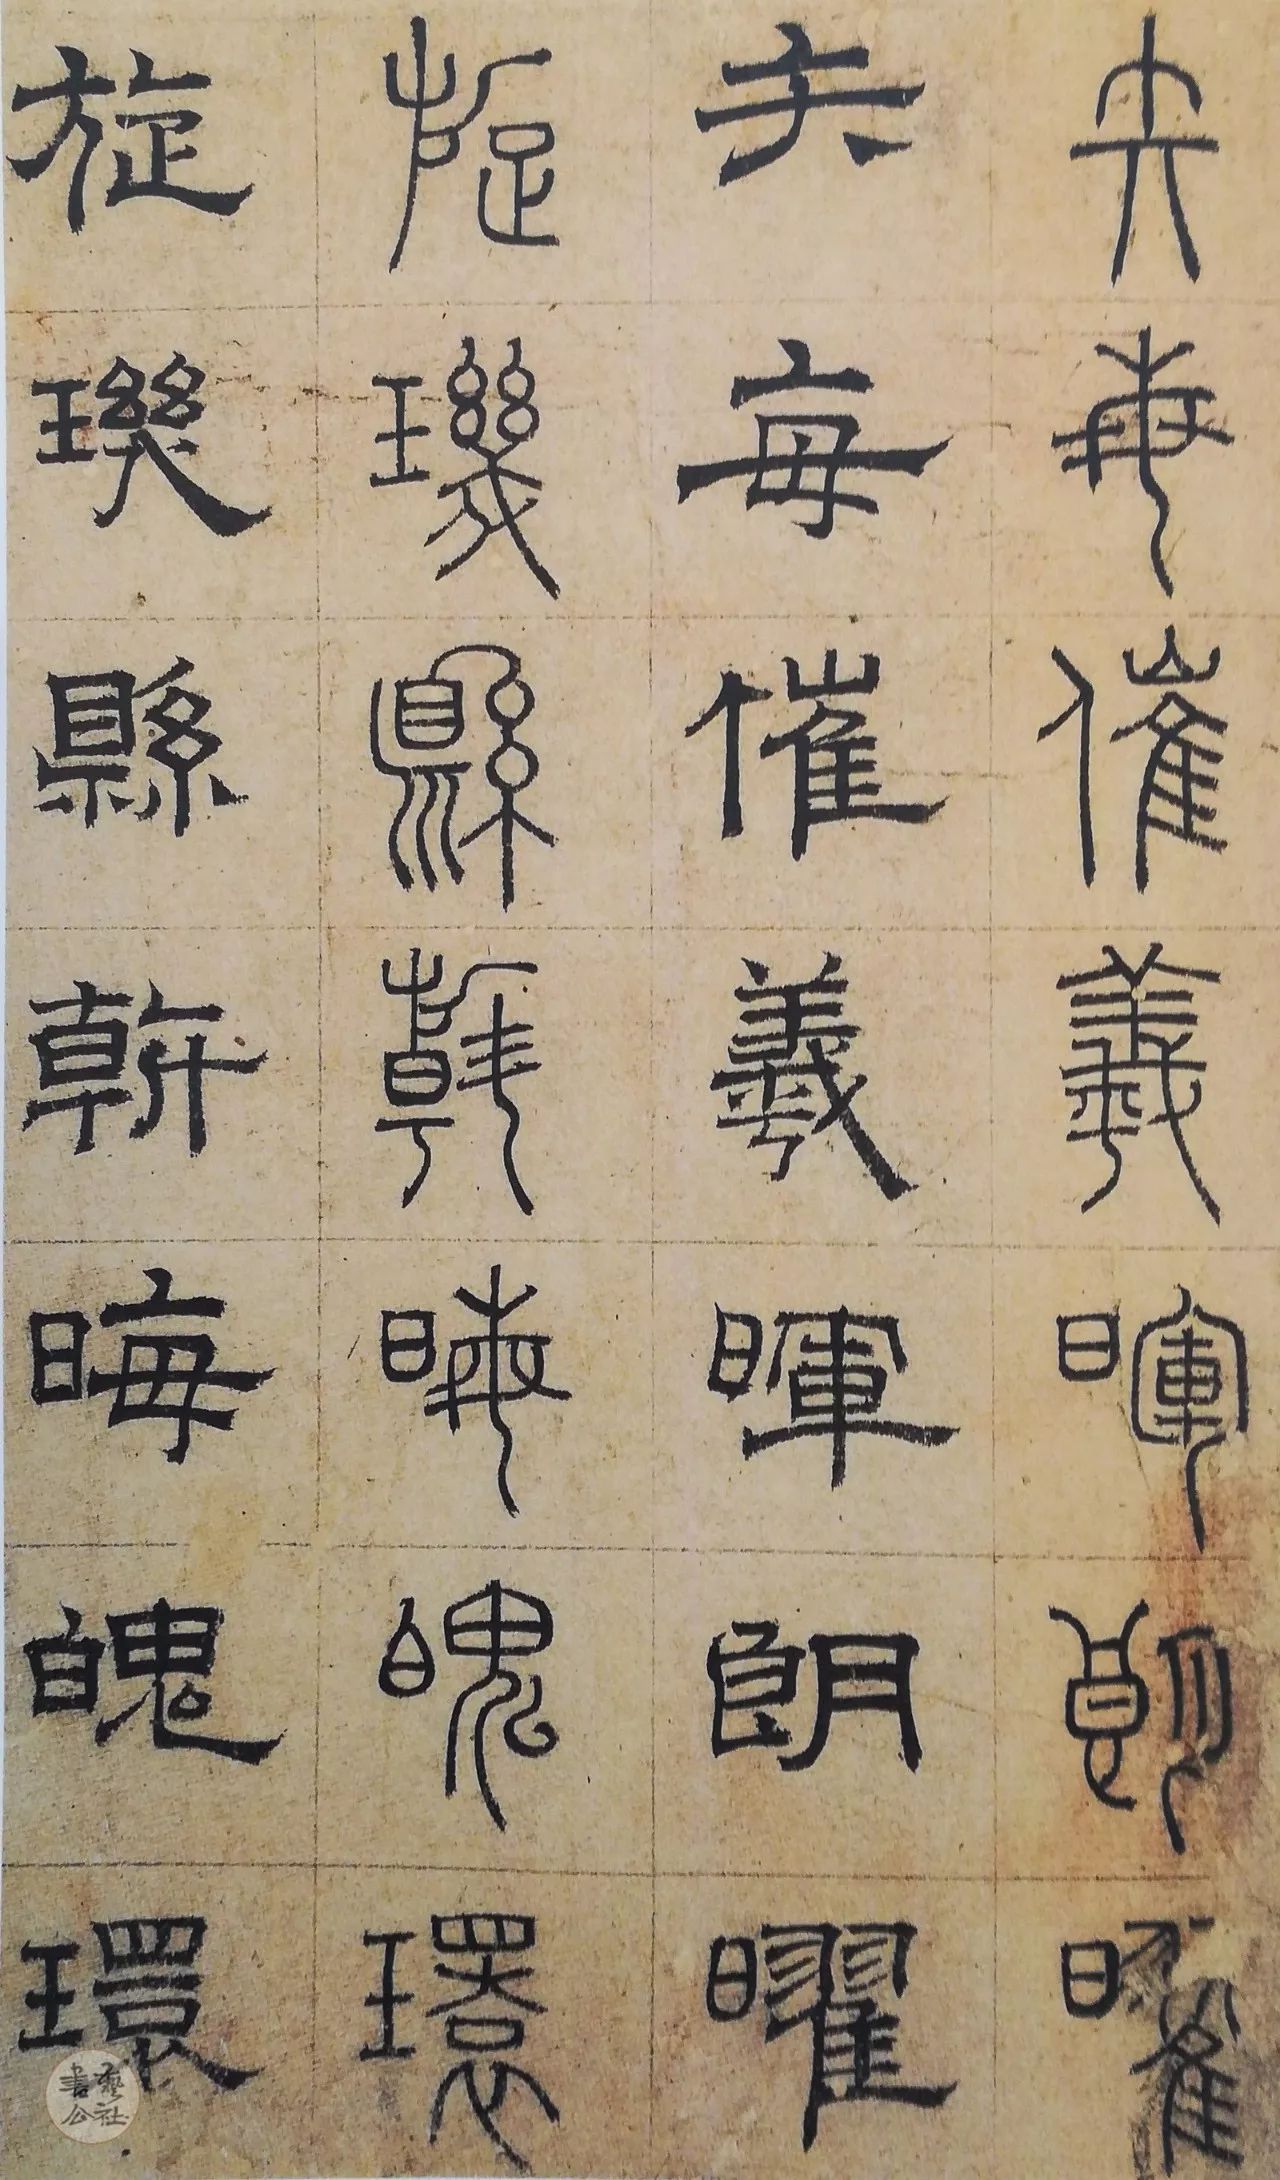 矢每催羲暉朗曜
矢每催羲暉朗曜
旋璣縣斡晦魄環
旋璣縣斡晦魄環
書藝公社